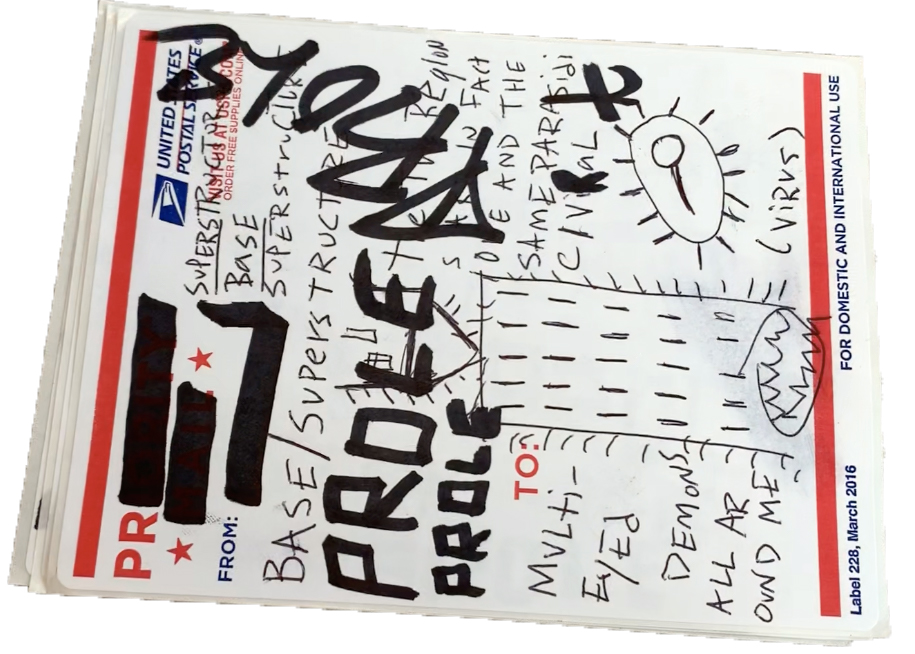 PRIORITY
MAIL
UNITED STATES
POSTAL SERVICE®
VISIT US AT USPS.COM
ORDER FREE SUPPLIES ONLINE
FROM:
SUPERSTRUCTUR
BaSE
SUPERStruCtUR
BASE/SUPersTRUCTURE
PROLE
PROLE
PROLE
THE TW REgION
S AR IN FACT
O E AND THE
SAME PARASiti
C/ViRaL
TO:
MULti-
EyEd
DEMONS
ALL AR
OUND ME
(ViRUS)
Label 228, March 2016
FOR DOMESTIC AND INTERNATIONAL USE